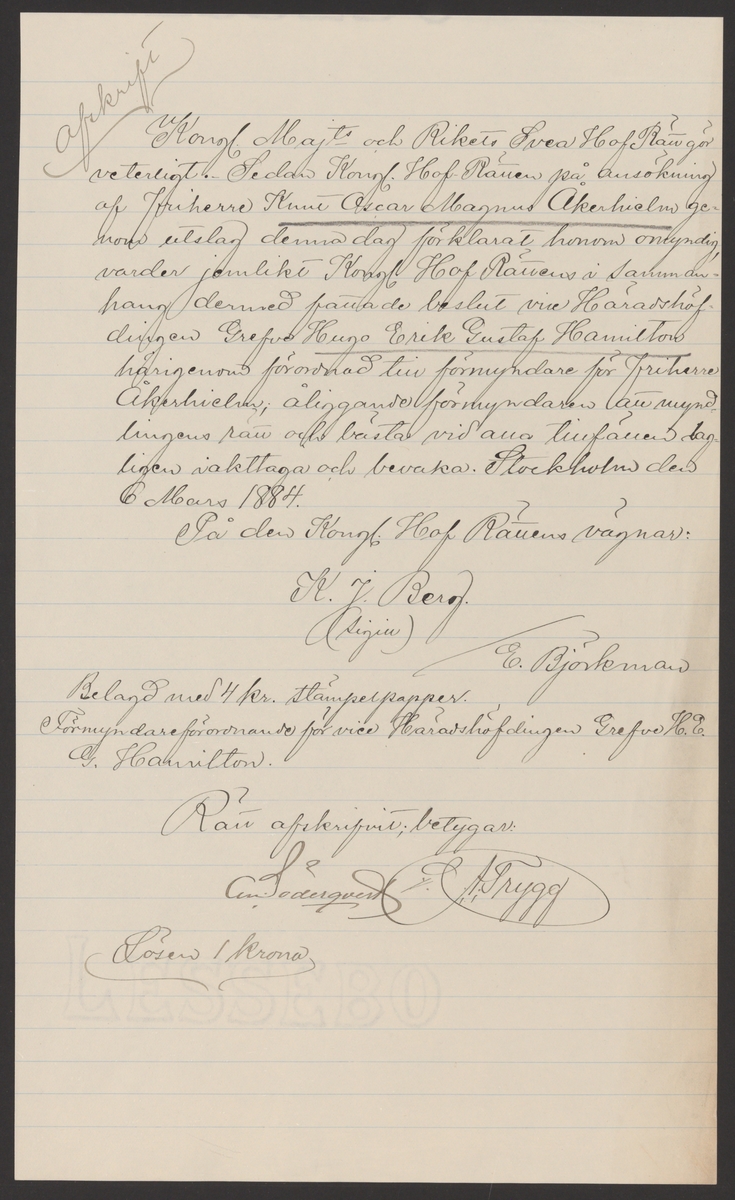 Afskrift
Kongl. Majts och Rikets Svea Hof Rätt gör
veterligt - Sedan Kongl. Hof Rätten på ansökning
af Friherre Knut Oscar Magnus Åkerhielm ge-
nom utslag denna dag förklarat honom omyndig,
varder jemlikt Kongl. Hof Rättens i samman-
hang dermed fattade beslut vice Häradshöf-
dingen Grefve Hugo Erik Gustaf Hamilton
härigenom förordnad till förmyndare för Friherre
Åkerhielm; åliggande förmyndaren att mynd-
lingens rätt och bästa vid alla tillfällen lag-
ligen iakttaga och bevaka. Stockholm den
6 Mars 1884.
På den Kongl. Hof Rättens vägnar:
K. J. Berg.
(sigill)
E. Björkman
Belagd med 4 kr. stämpelpapper.
Förmyndareförordnande för vice Häradshöfdingen Grefve H. E.
G. Hamilton.
Rätt afskrifvit; betygar:
Söderqvist A. Trygg
Lösen 1 krona
LESSEBO